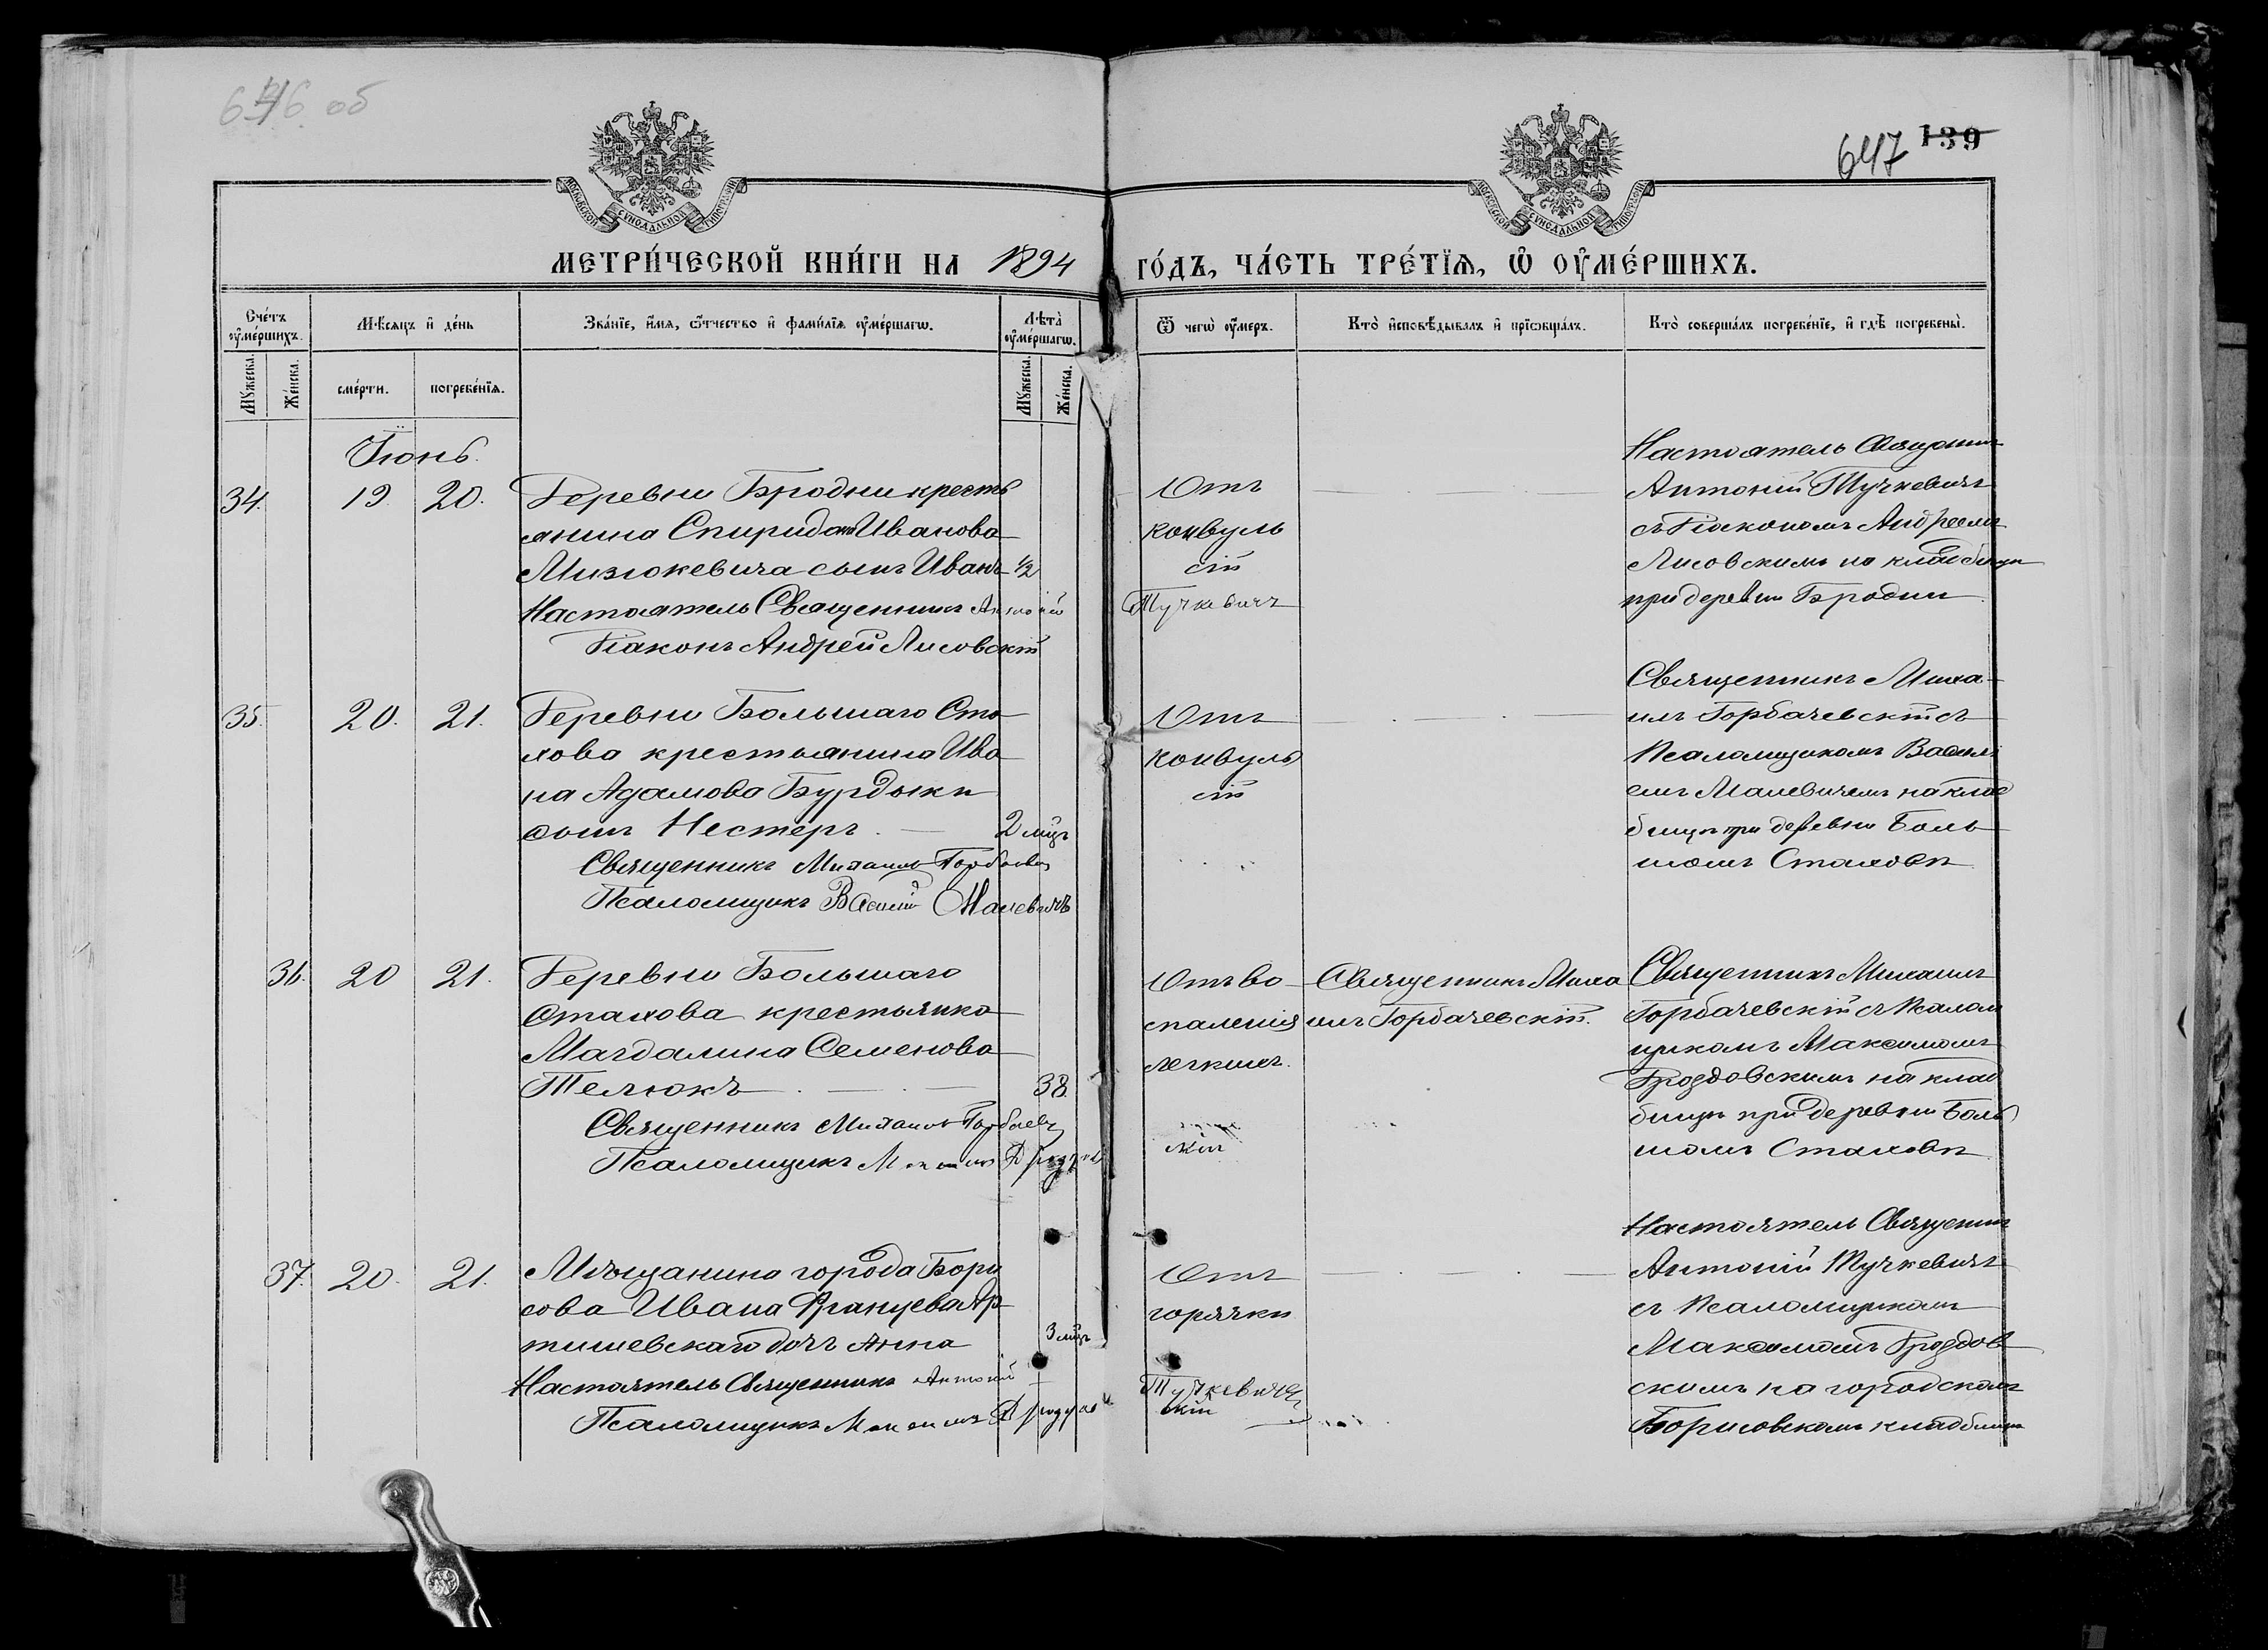 646 об
647 139
МОСКОВСКОЙ СУНОДАЛЬНОЙ ТИПОГРАФІИ
МОСКОВСКОЙ СУНОДАЛЬНОЙ ТИПОГРАФІИ
МЕТРИ́ЧЕСКОЙ КНИ́ГИ НА 1894 ГО́ДЪ, ЧА́СТЬ ТРЕ́ТЇѦ, Ѽ ОУ҆МЕ́РШИХЪ.
Сче́тъ оу҆ме́ршихъ.
Мѣ́сяцъ и҆ де́нь
Зва́нїе, и҆́мя, ѻ҆́тчество и҆ фами́лїя оу҆ме́ршагѡ.
Лѣта̀ оу҆ме́ршагѡ.
Ѿ чегѡ̀ оу҆́меръ.
Кто̀ и҆сповѣ́дывалъ и҆ прїѡбща́лъ.
Кто̀ соверша́лъ погребе́нїе, и҆ гдѣ̀ погребены̀.
Мꙋ́жеска.
Же́нска.
сме́рти.
погребе́нїя.
Мꙋ́жеска.
Же́нска.
Іюнь.
34. 19. 20.
Деревни Бродни кресть
янина Спиридона Иванова
Мизюкевича сынъ Иванъ ½
Настоятель Священникъ Антоній Тучкевичъ
Діаконъ Андрей Лисовскій
Отъ
конвуль
сій
Настоятель Священникъ
Антоній Тучкевичъ
съ Діакономъ Андреемъ
Лисовскимъ на кладбищѣ
при деревни Бродни
35. 20. 21.
Деревни Большаго Ста
хова крестьянина Ива
на Адамова Бурдыки
сынъ Нестеръ. 2 мѣц
Священникъ Михаилъ Горбачев
Псаломщикъ Василій Малевичъ
Отъ
конвуль
сій
Священникъ Миха
илъ Горбачевскій съ
Псаломщикомъ Васил
емъ Малевичемъ на клад
бищѣ при деревни Боль
шомъ Стаховѣ
36. 20 21.
Деревни Большаго
Стахова крестьянка
Магдалина Семенова
Телюкъ 38.
Священникъ Михаилъ Горбачев
Псаломщикъ Максимъ Дроздов
скій
Отъ во
спаленія
легкихъ.
Священникъ Миха
илъ Горбачевскій.
Священникъ Михаилъ
Горбачевскій съ Псалом
щикомъ Максимомъ
Дроздовскимъ на клад
бищѣ при деревни Боль
шомъ Стаховѣ
37. 20. 21.
Мѣщанина города Бори
сова Ивана Францева Ар
тишевскаго дочь Анна 3 мѣц
Настоятель Священникъ Антоній Тучкевичъ
Псаломщикъ Максимъ Дроздов
скій
Отъ
горячки
Настоятель Священникъ
Антоній Тучкевичъ
съ Псаломщикомъ
Максимомъ Дроздов
скимъ на городскомъ
Борисовскомъ кладбищѣ